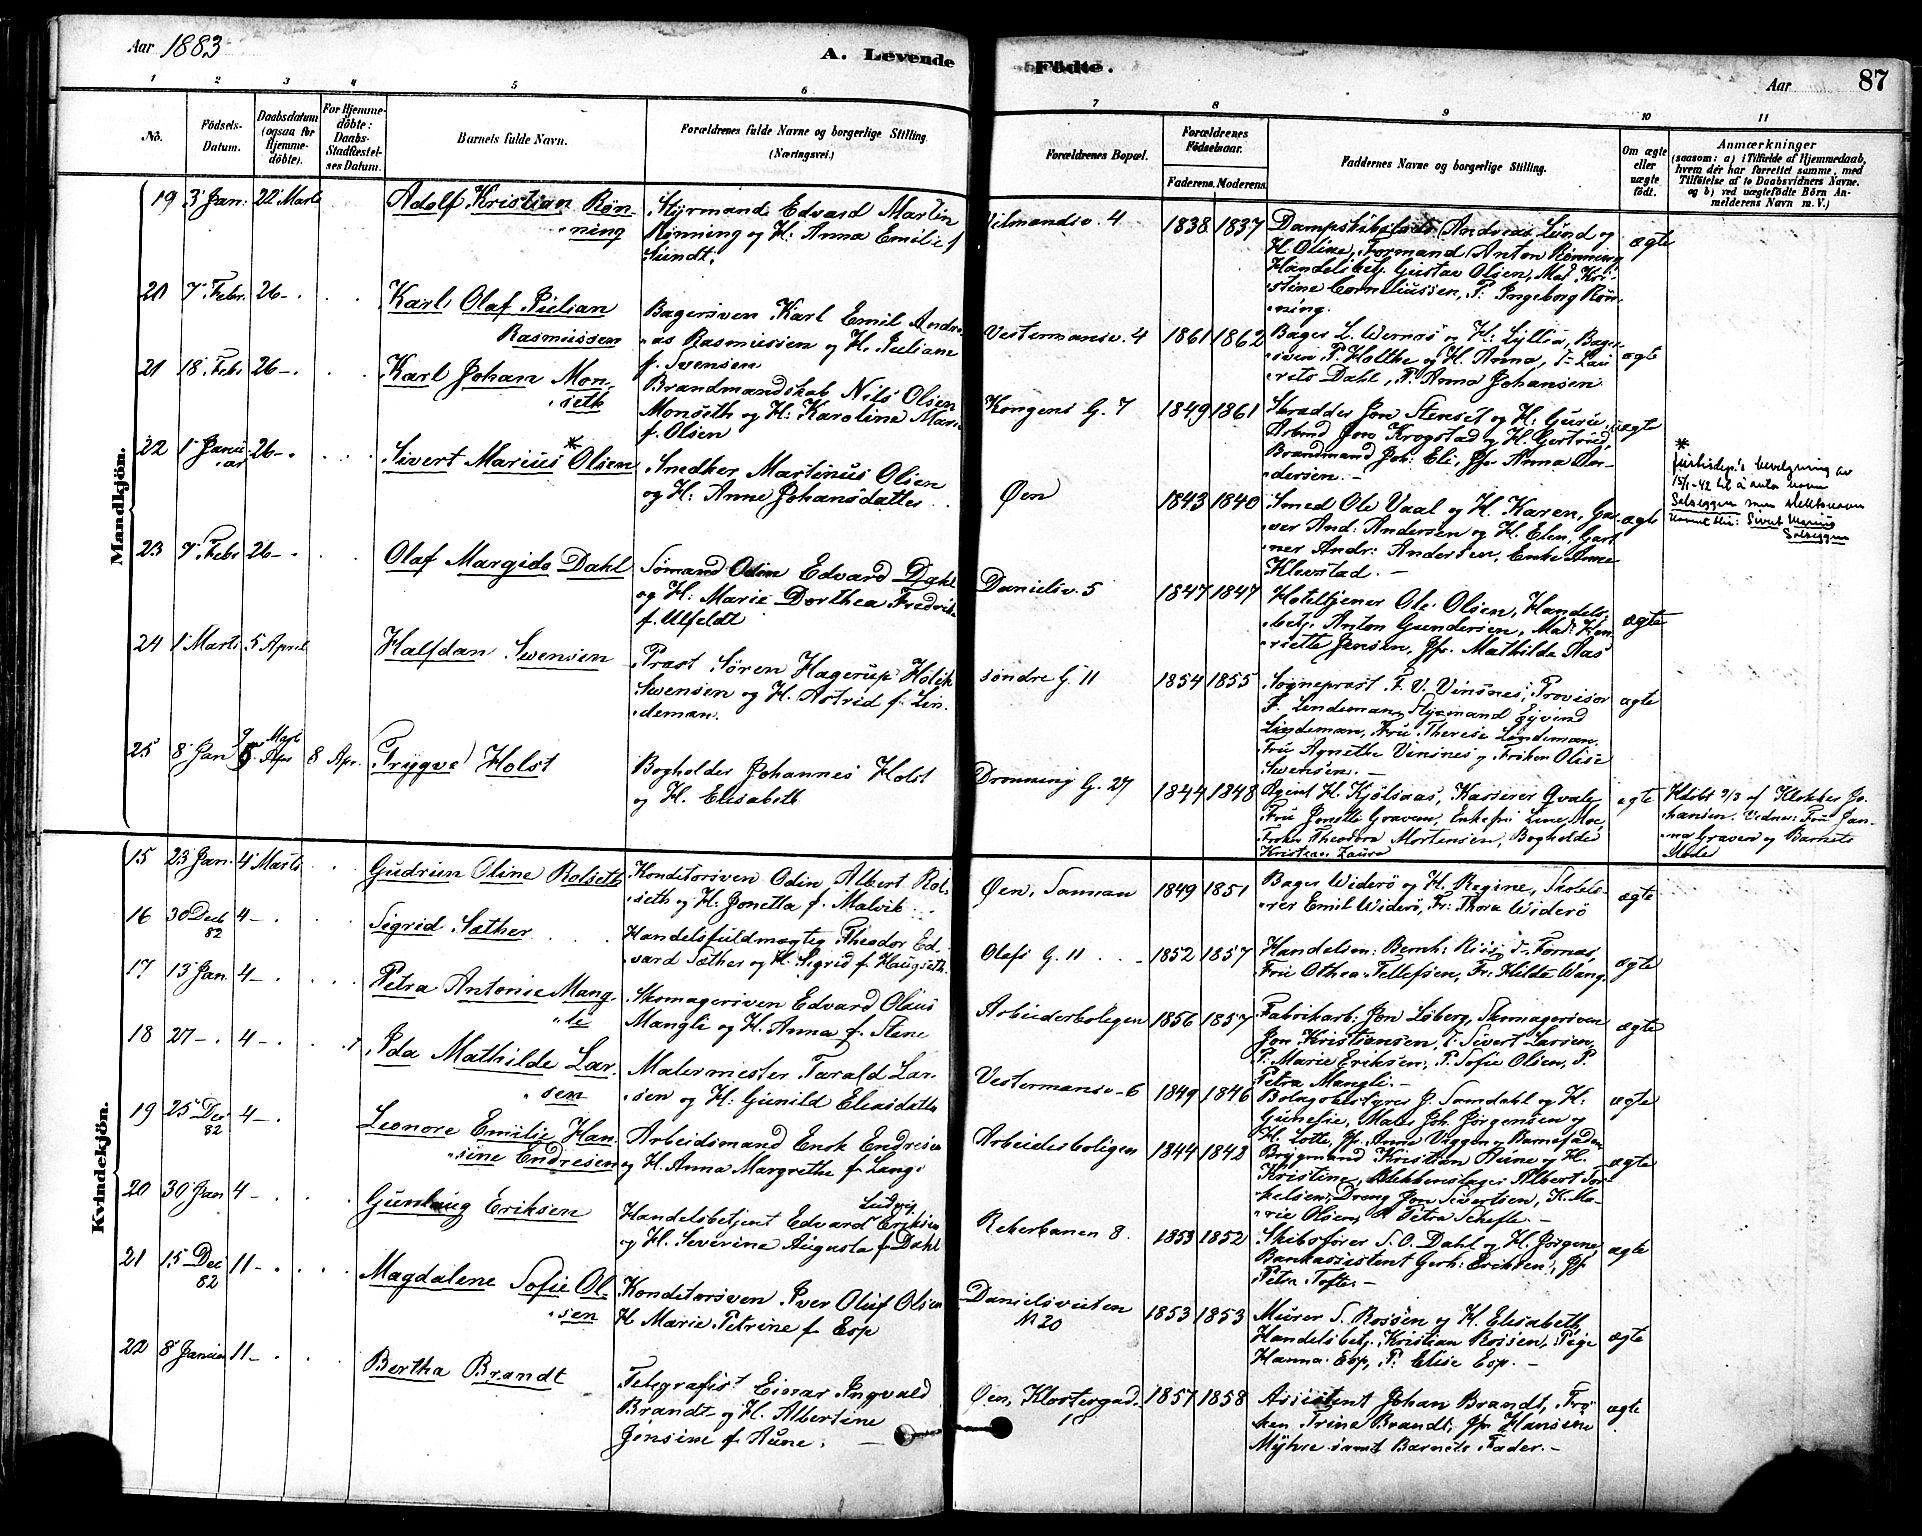 Aar 1883
A. Levende
Fødte.
Aar
87
1 2 3 4 5 6 7 8 9 10 11
No.
Födsels-
Datum.
Daabsdatum
(ogsaa for
Hjemme-
döbte).
For Hjemme-
döbte:
Daabs-
Stadfæstel-
ses Datum.
Barnets fulde Navn.
Forældrenes fulde Navne og borgerlige Stilling.
(Næringsvei.)
Forældrenes Bopæl.
Forældrenes
Födselsaar.
Faderens. Moderens.
Faddernes Navne og borgerlige Stilling.
Om ægte
eller
uægte
födt.
Anmærkninger
(saasom: a) i Tilfælde af Hjemmedaab,
hvem der har forrettet samme, med
Tilföielse af to Daabsvidners Navne.
og b) ved uægtefödte Börn An-
melderens Navn m. V.)
Mandkjön.
19 3 Jan. 22 Marts
Adolf Kristian Røn-
ning
Styrmand Edvard Martin
Rønning og H. Anna Emilie f
Sundt.
1838 1837
Andreas Lund og
H. Oline, Formand Anton Rønning
Handelsbetj. Gustav Olsen, Mad. Kri-
stine Corneliussen, P. Ingeborg Røn-
ning.
ægte
20 7 Febr. 26 - .
Karl Olaf Julian
Rasmussen
Bagersven Karl Emil Andre-
as Rasmussen og H. Julian
f. Svensen
Vestermansv. 4
1861 1862
Bager L. Wernøs og H. Lyllia, Bager-
sven P. Holthe og H. Anna, T. Lau-
rets Dahl, P. Anna Johansen.
ægte
21 18 Febr 26 - .
Karl Johan Mon-
seth
Brandmandskab Nils Olsen
Monseth og H. Karoline Marie
f. Olsen
Kongens G. 7
1849 1861
Skrædder Jon Stenset og H. Guru,
Arbmd Jon Krogstad og H. Gertrud,
Brandmand Joh: Eli, Pp. Anna An-
dersen. -
ægte
22 1 Janu-
ar 26 - .
Sivert Marius * Olsen
Snedker Martinus Olsen
og H. Anne Johansdatter
Øen
1843 1840
Smed Ole Vaal og H. Karen, Gar-
ver And: Andersen og H. Elen, Gart-
ner Andr: Andersen, Enke Anne
Klevstad. -
ægte
*
Justisdep.'s bevilgning av
15/1-42 til å anta navn
Solseggen som slektsnavn
Sivert Marius
Solseggen
23 7 Febr 26 - .
Olaf Margido Dahl
Sømand Odin Edvard Dahl
og H. Marie Dorthea Fredrik
f. Ulfeldt
Danielsv. 5
1847 1847
Hoteltjener Ole Olsen, Handels-
betj. Anton Gundersen, Mad. Hen-
riette Jensen, Pp. Mathilde Aas
ægte
24 1 Marts 5 April
Halfdan Svensen
Præst Søren Hagerup Holck
Svensen og H. Astrid f. Lin-
deman.
søndre G. 11
1854 1855
Sognepræst F. V. Vinsnes, Provisor
F. Lindeman, Styrmand Eyvind
Lindeman, Fru Therese Lindeman,
Fru Agnethe Vinsnes og Frøken Olise
Svensen. -
ægte
25 8 Jan 8 Apr.
Trygve Holst
Bogholder Johannes Holst
og H. Elisabeth
Dronning G. 27
1844 1848
Agent H. Kjölsaas, Kasserer Qvale,
Fru Graven, Enkefru Line Moe,
Frøken Theodora Mortensen, Bogholder
Kristian Laura
ægte
Hdöbt 9/3 af Klokker Jo-
hansen. Vidner: Fru Jan-
na Graven og Barnets
Moder
Kvindekjön.
15 23 Jan. 4 Marts
Gudrun Oline Rolseth
Konditorsven Odin Albert Rol-
seth og H. Jonetta f. Malvik
Øen, Sannan
1849 1851
Bager Widerö og H. Regine, Skolelæ-
rer Emil Widerö, Fr. Thora Widerö
ægte
16 30 Dec 82 4 -
Sigrid Sæther
Handelsfuldmægtig Theodor Ed-
vard Sæther og H. Sigrid f. Haugseth
Olafs G. 11
1852 1857
Handelsm: Bernh: Fornæs,
Fru Othea Tellefsen, Fr. Hilda Wang.
ægte
17 13 Jan. 4 -
Petra Antonie Mang-
li
Skomagersven Edvard Olaus
Mangli og H. Anna f. Stene
Arbeiderboligen
1856 1857
Fabrikarb: Jon Løberg, Skomagersven
Jon Kristiansen, T. Sivert Larsen,
P. Marie Eriksen, P. Sofie Olsen, P.
Petra Mangli. -
ægte
18 27 - . 4 -
Ida Mathilde Lar-
sen
Malermester Tarald Lar-
sen og H. Gunild Eliasdatter
Vestermansv - 6
1849 1846
J. Samdahl og H.
Gunelie, Maler Joh. Jørgensen og
H. Lotte, Pp. Anna Viggen og Barnefaderen
ægte
19 25 Dec 82 4 -
Leonore Emilie Han-
sine Endresen
Arbeidsmand Enok Endresen
og H. Anna Margrethe f. Lange
Arbeiderboligen
1844 1842
Brygmand Kristian Aune og H.
Kristine, Blikkenslager Albert Tor-
kelsen, Dreng Jon Sivertsen, K. Ma-
rie Olsen, P. Petra Schefle. -
ægte
20 30 Jan 4 -
Gunlaug Eriksen
Ludvig
Handelsbetjent Edvard Eriksen
og H. Severine Augusta f. Dahl
Reberbanen 8.
1853 1852
Skibsfører S. O. Dahl og H. Jørgine,
Bankassistent Gerh: Eriksen, Pp
Petra Tofte. -
ægte
21 15 Dec 82 11 -
Magdalene Sofie Ol-
sen
Konditorsven Iver Oluf Olsen
H. Marie Petrine f. Esp
Danielsveiten
N 20
1853 1853
Murer S. Rossen og H. Elisabeth,
Handelsbetj. Kristian Rossen, Pige
Hanna Esp, P. Elise Esp. -
ægte
22 8 Januar 11 -
Bertha Brandt
Telegrafist Einar Ingvald
Brandt og H. Albertine
Jensine f. Aune.
Øen, Klostergad.
18
1857 1858
Assistent Johan Brandt, Frö-
ken Trine Brandt, Pp Hansine
Myhre samt Barnets Fader. -
ægte